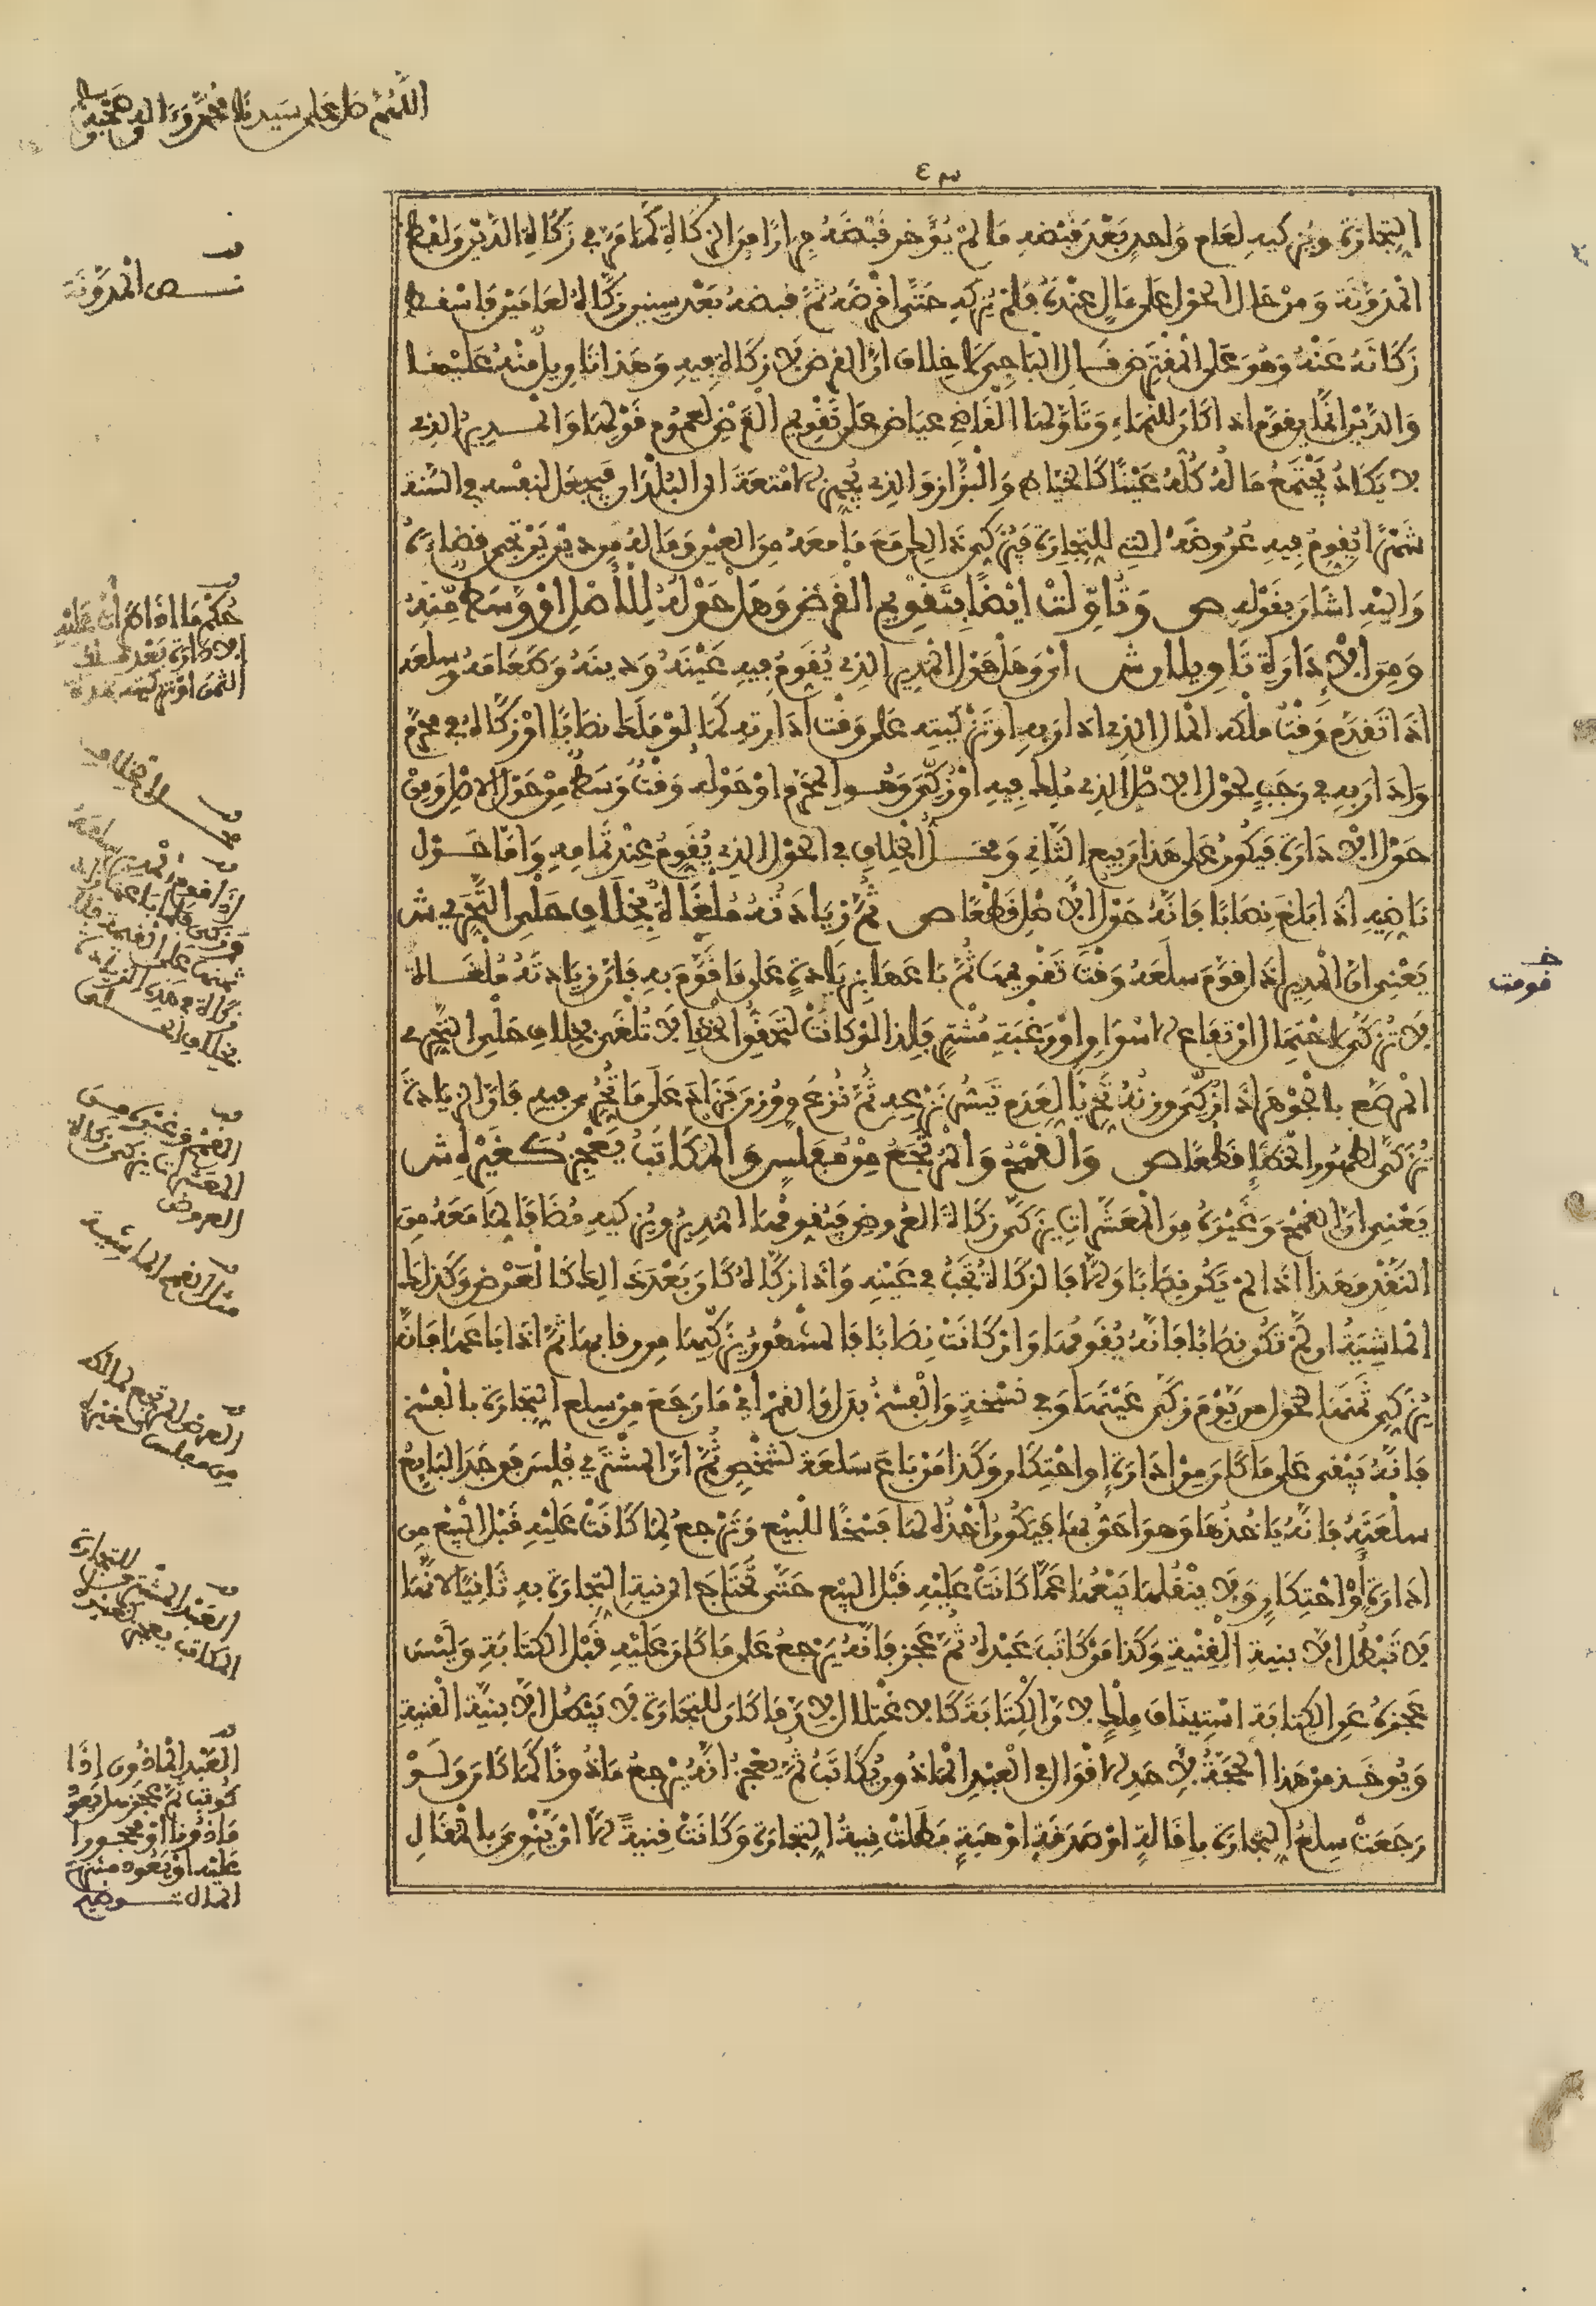 اللهم صل على سيدنا محمد وءاله وصحبه
التجارة ويزكيه لعام واحد بعد قبضه ما لم يؤخر قبضه فرارا من الزكاة كما مر في زكاة الدين ولفظ
المدونة ومن حال الحول على مال عنده فلم يزكه حتى اقرضه ثم قبضه بعد سنين زكاه لعامين فاسقط
زكاته عنه وهو على المقترض قال الباجي لا خلاف ان القرض لا زكاة فيه وهذا تاويل منه عليها
والدين انما يقوم اذا كان للنماء وتاولها القاضي عياض على تقويم القرض لعموم قولها والمدير الذي
لا يكاد يجتمع ماله كله عينا كالخياط والبزاز والذي يجهز الامتعة الى البلدان فيجعل لنفسه في السنة
شهرا يقوم فيه عروضه التي للتجارة فيزكي ذلك مع ما معه من العين وماله من دين يرتجي قضاءه
واليه اشار بقوله ص وتاولت ايضا بتقويم القرض وهل حوله للاصل او وسط منه
ومن الادارة تاويلان ش اي وهل حول المدير الذي يقوم فيه عينه ودينه وطعامه وسلعه
اذا تقدم وقت ملكه المال الذي ادار به او تزكيته على وقت ادارته كما لو ملك نصابا او زكاه في محرم
وادار به في رجب لحول الاصل الذي ملك فيه او زكي وهو المحرم او حوله وقت وسط من حول الاصل ومن
حول الادارة فيكون على هذا ربيع الثاني ومحل الخلاف في الحول الذي يقوم عند تمامه واما حول
ناضه اذا بلغ نصابا فانه حول الاصل قطعا ص ثم زيادته ملغاة بخلاف حلي التحري ش
يعني ان المدير اذا قوم سلعه وقت تقويمها ثم باعها بزيادة على ما قوم به فان زيادته ملغاة
لا تزكى لاحتمال ارتفاع الاسواق او رغبة مشتر فلذا لو كانت لتحقق الخطإ لا تلغى بخلاف حلي التحري
المرصع بالجوهر اذا زكي وزنه تحريا لعدم تيسر نزعه ثم نزع ووزن فزاد على ما تحرى فيه فان الزيادة
تزكى لظهور الخطإ قطعا ص والقمح والمرتجع من مفلس والمكاتب يعجز كغيره ش
يعني ان القمح وغيره من المعشرات يزكى زكاة العروض فيقومها المدير ويزكيه مضافا لما معه من
النقد وهذا اذا لم يكن نصابا والا فالزكاة تجب في عينه واذا زكاه كان بعد ذلك كالعرض وكذلك
الماشية ان لم تكن نصابا فانه يقومها وان كانت نصابا فالمشهور يزكيها من رقابها ثم اذا باعها فانه
يزكي ثمنها لحول من يوم زكى عينها وفي نسخة والفسخ بدل القمح اي ما رجع من سلع التجارة بالفسخ
فانه يبقى على ما كان من ادارة او احتكار وكذا من باع سلعة لشخص ثم ان المشتري فلس فوجد البايع
سلعته فانه ياخذها وهو احق بها فيكون اخذه لها فسخا للبيع وترجع لما كانت عليه قبل البيع من
ادارة او احتكار ولا ينقلها بيعها عما كانت عليه قبل البيع حتى تحتاج الى نية التجارة به ثانيا لانها
لا تبطل الا بنية القنية وكذا من كاتب عبده ثم عجز فانه يرجع على ما كان عليه قبل الكتابة وليس
عجزه عن الكتابة استيناف ملك لان الكتابة كالاغتلال لان ما كان للتجارة لا يبطل الا بنية القنية
ويوخذ من هذا الحجة لاحد الاقوال في العبد الماذون يكاتب ثم يعجز انه يرجع ماذونا كما كان ولو
رجعت سلع التجارة باقالة او صدقة او هبة بطلت نية التجارة وكانت قنية الا ان ينوي بالمقال
نص المدونة
حكم ما اذا طرات عليه
الادارة بعد ملك
الثمن او تزكيته بمدة
محل الخلاف
اذا قوم المدير سلعه
وزكى فلما باعها زاد
ثمنها على القيمة فلا
زكاة في هذه الزيادة
بخلاف الحلي
القمح وغيره من
المعشرات يزكى زكاة
العروض
مثل القمح الماشية
العرض المرتجع لمالكه
من مفلس كغيره
العبد المشترى للتجارة
المكاتب يعجز
العبد الماذون اذا
كوتب ثم عجز هل يعود
ماذونا او محجورا
عليه او يعود منتزع
المال
قومت